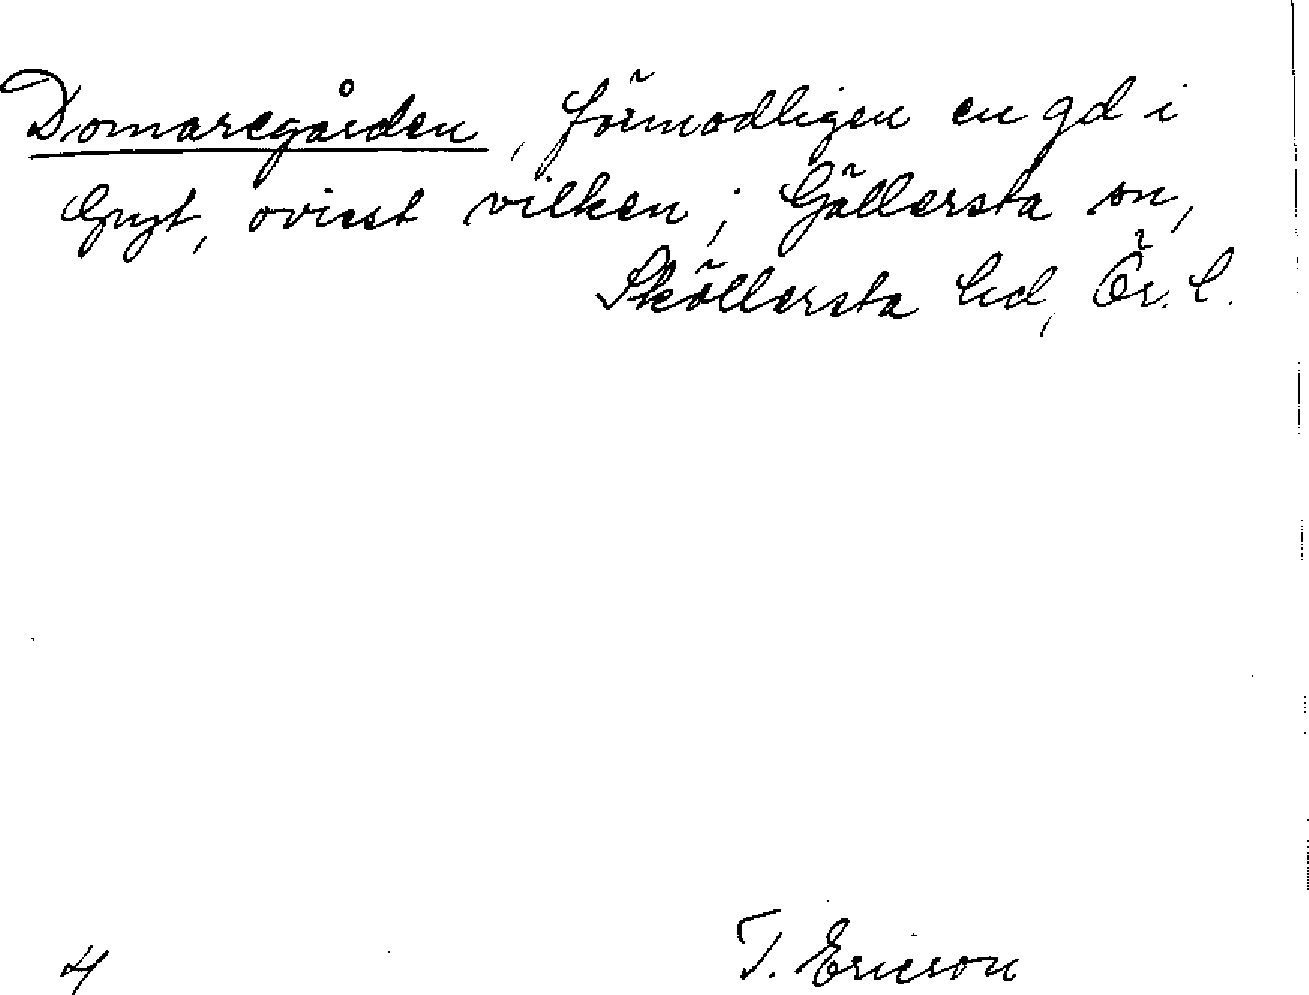 Domaregården, förmodligen en gd i
Gryt, ovisst vilken; Gällersta sn,
Sköllersta hd, Ör. l.
4
T. Ericson